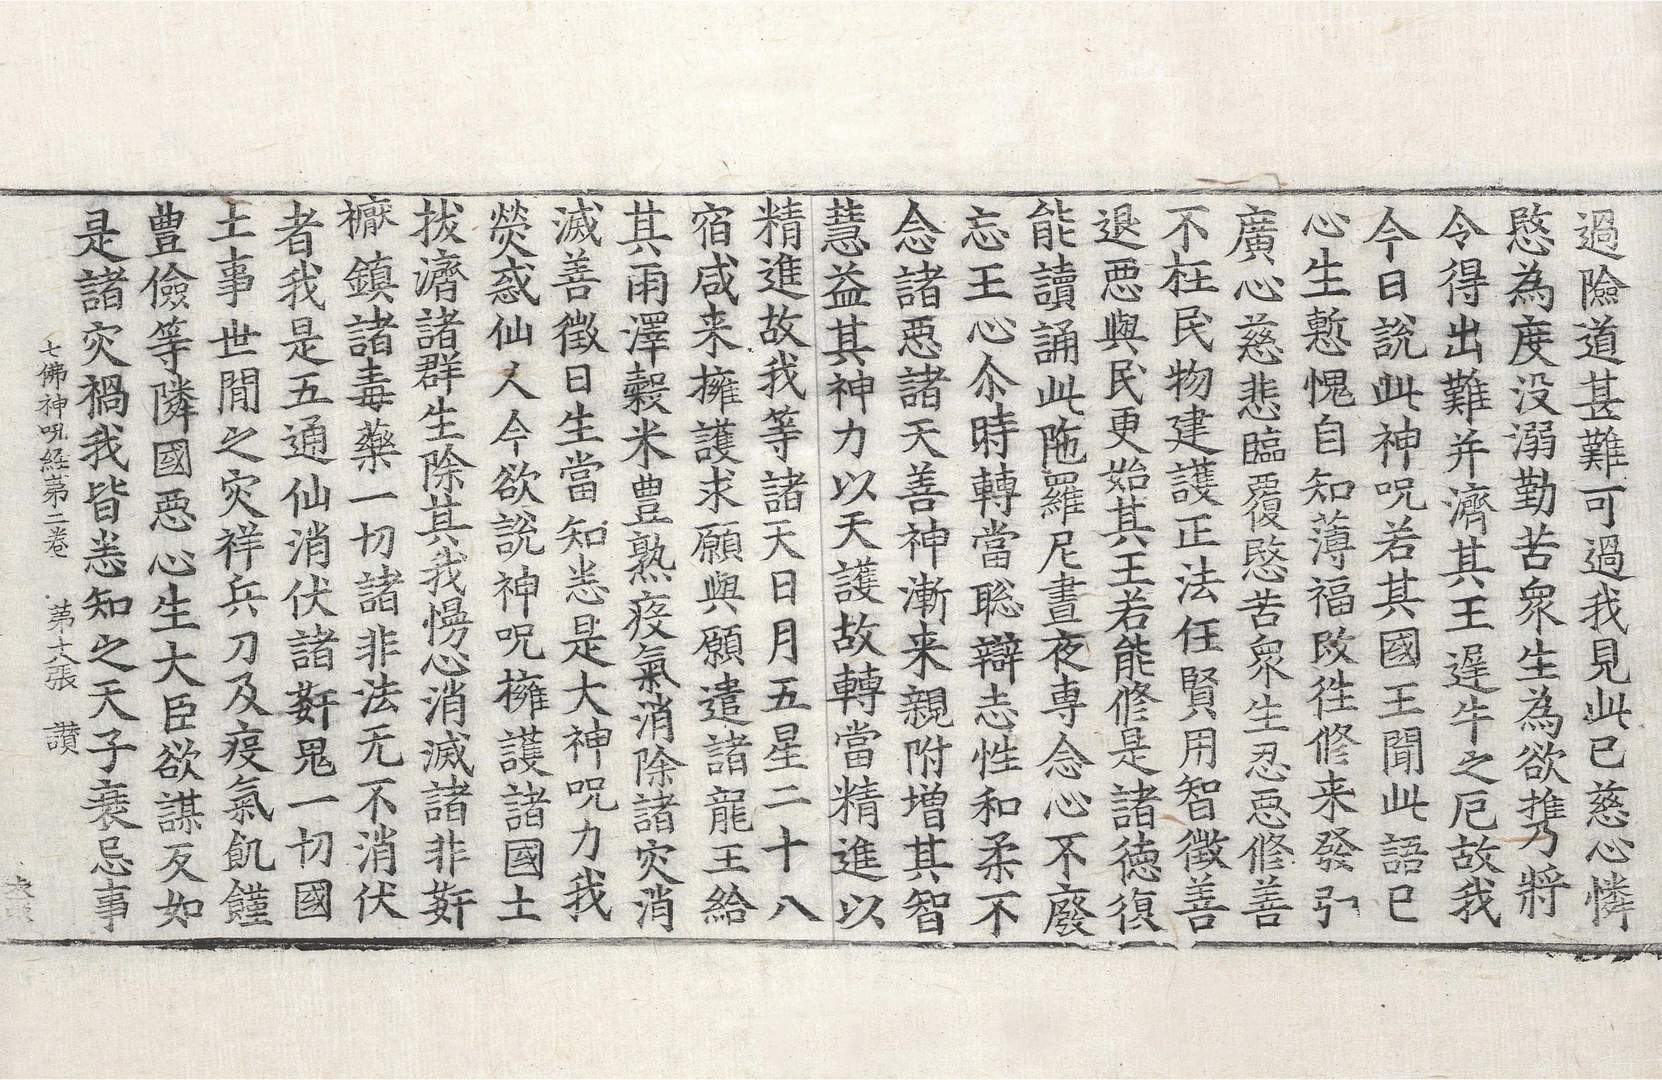 過險道甚難可過我見此已慈心憐
愍為度没溺勤苦衆生為欲推乃將
令得出難并濟其王遟牛之厄故我
今日說此神呪若其國王聞此語已
心生慙愧自知薄福改徃修来發引
廣心慈悲臨覆愍苦衆生忍惡修善
不枉民物建護正法任賢用智徵善
退惡與民更始其王若能修是諸徳復
能讀誦此陁羅尼晝夜専念心不廢
忘王心尒時轉當聡辯志性和柔不
念諸惡諸天善神漸来親附增其智
慧益其神力以天護故轉當精進以
精進故我等諸天日月五星二十八
宿咸来擁護求願與願遣諸龍王給
其雨澤穀米豊熟疫氣消除諸灾消
滅善徵日生當知恙是大神呪力我
熒惑仙人今欲說神呪擁護諸國土
拔濟諸群生除其我慢心消滅諸非姧
禳鎮諸毒藥一切諸非法无不消伏
者我是五通仙消伏諸姧鬼一切國
土事世間之灾祥兵刀及疫氣飢饉
豊儉等隣國惡心生大臣欲謀反如
是諸灾禍我皆恙知之天子衰忌事
七佛神呪経苐二卷 苐十八張 讃